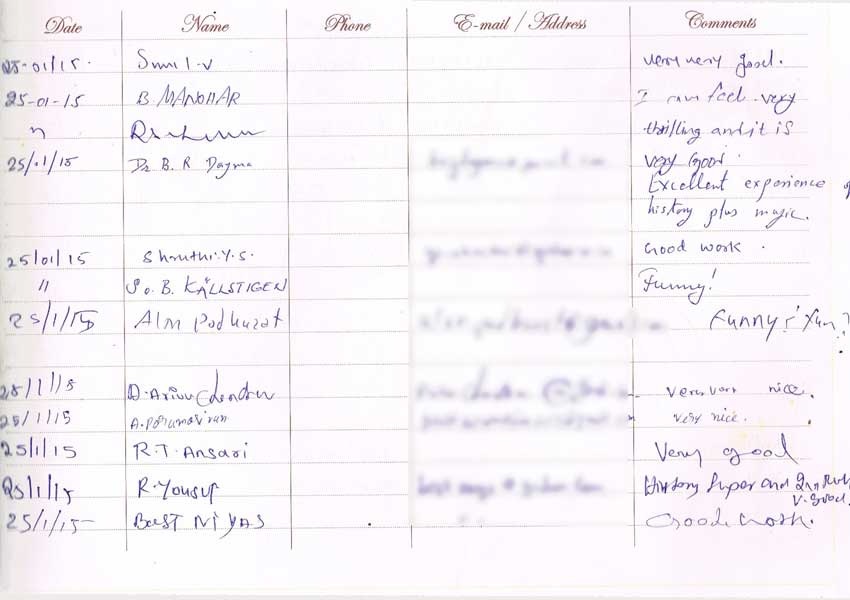 Date Name Phone E-mail / Address Comments
25-01/15. Sunil-v very very good.
25-01-15 B. MANOHAR I am feel very
" thrilling and it is
25/01/15 Dr B. R Dagma very Good.
Excellent experience of
history plus magic.
25/01/15 Shruthi.Y.S. Good work.
" S.o.B. KÄLLSTIGEN Funny!
25/1/15 Alm Podhurat Funny! Fun!?
25/1/15 D. Arivu Chendru very very nice.
25/1/15 A. Poramasivan very nice.
25/1/15 R.T. Ansari Very good
25/1/15 R. Yousuf History Super and
V. good.
25/1/15 BEST NIYAS Good work.